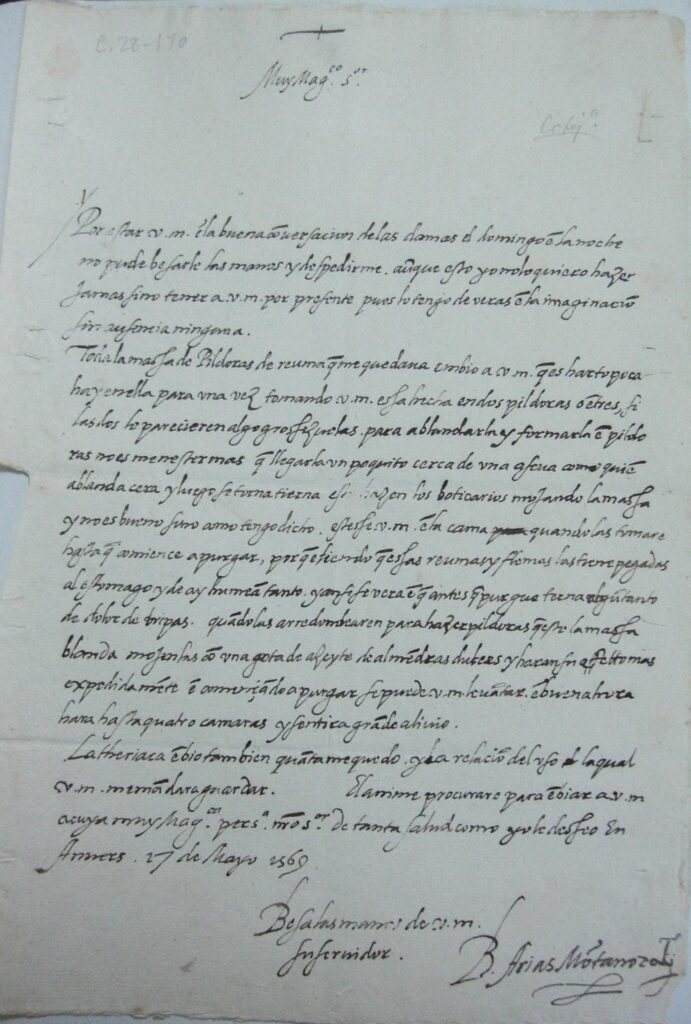 C. 28-170
Muy Mag.co s.or
Cotej.o
Por estar v.m. ẽ la buena cõversacion de las damas el domingo ẽ la noche
no pude besarle las manos y despedirme. aũque esto yo no lo quiero hazer
jamas sino tener a .v.m. por presente pues lo tengo de veras ẽ la imaginaciõ
sin ausencia ninguna.
Toda la massa de Pildoras de reuma q̃ me quedaua embio a v.m. q̃ es harto poca
hay en ella para vna vez tomando v.m. essa hecha en dos pildoras o ẽ tres, si
las dos le parecieren algo grossezuelas. para ablandarla y formarla ẽ pildo
ras no es menester mas q̃ llegarla vn poquito cerca de vna ascua como quiẽ
ablanda cera y luego se torna tierna hazen los boticarios mojando la massa
y no es bueno sino como tengo dicho. estesse v.m. ẽ la cama quando las tomare
hasta q̃ comience a purgar, porq̃ ẽtiendo q̃ essas reumas y flemas las tiene pegadas
al estomago y de ay humeã tanto. y ansi se vera ẽ q̃ antes q̃ purgue terna algũ tanto
de dolor de tripas. quãdo las arredondearen para hazer pildoras q̃ este la massa
blanda mojenlas cõ vna gota de azeyte de almẽdras dulces y haran su effetto mas
expedidamẽte ẽ comẽçãdo a purgar se puede v.m. leuãtar. ẽ buena hora
hara hasta quatro camaras y sentira grãde aliuio.
La theriaca ẽbio tambien quãta me quedo. y la relaciõ del vso la qual
v.m. me mãdara guardar. El anime procurare para ẽbiar a v.m
a cuya muy Mag.ca pers.a nrõ s.or de tanta salud como yo le desseo En
Anvers. 17 de Mayo 1569
Besa las manos de v.m.
su seruidor.
B. Arias Mõtano